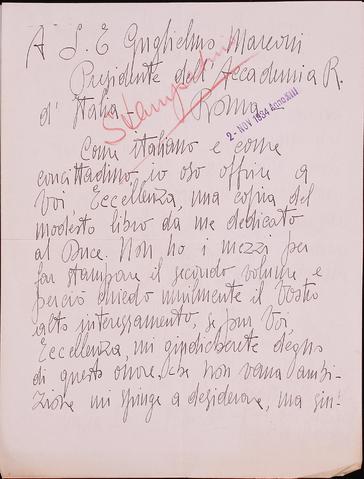 A S. E. Guglielmo Marconi
Presidente dell'Accademia R.
d'Italia - Roma
2 - NOV 1934 Anno XIII
Come italiano e come
concittadino io oso offrire a
Voi Eccellenza, una copia del
modesto libro da me dedicato
al Duce. Non ho i mezzi per
far stampare il secondo volume e
perciò chiedo umilmente il Vostro
alto interessamento, se pur Voi,
Eccellenza, mi giudicherete degno
di questo onore, che non vana ambi-
zione mi spinge a desiderare, ma sin-